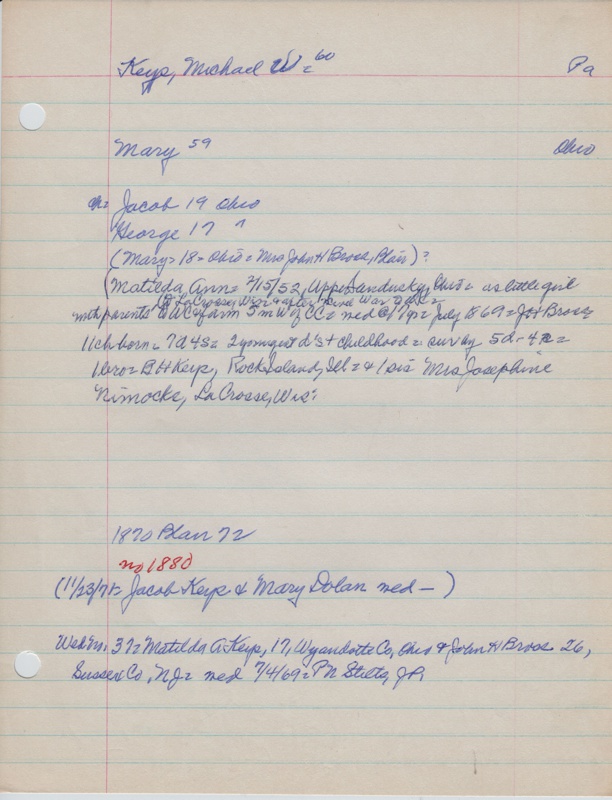 Keys, Michael W = 60 Pa
Mary 59 Ohio
ch= Jacob 19 Ohio
George 17 "
(Mary = 18 = Ohio = Mrs John H Bross, Plain)?
(Matilda Ann = 2/15/52, Upper Sandusky, Ohio = as little girl
to LaCrosse, Wis = & after War =
with parents to WC = farm 5 m W of CC = med @ 17 yr = July 1869 = J H Bross
11 ch born = 7d 4s = 2 youngest d's + childhood = surv by 5d - 4s =
1 bro = B H Keys, Rock Island, Ill = & 1 sis Mrs Josephine
Nimocks, LaCrosse, Wis:
1870 Plain 72
no 1880
(11/23/71 = Jacob Keys & Mary Dolan med — )
Web M. 37 = Matilda A Keys, 17, Wyandotte Co, Ohio & John H Bross 26,
Sussex Co, NJ = med 7/4/69 = P N JP,